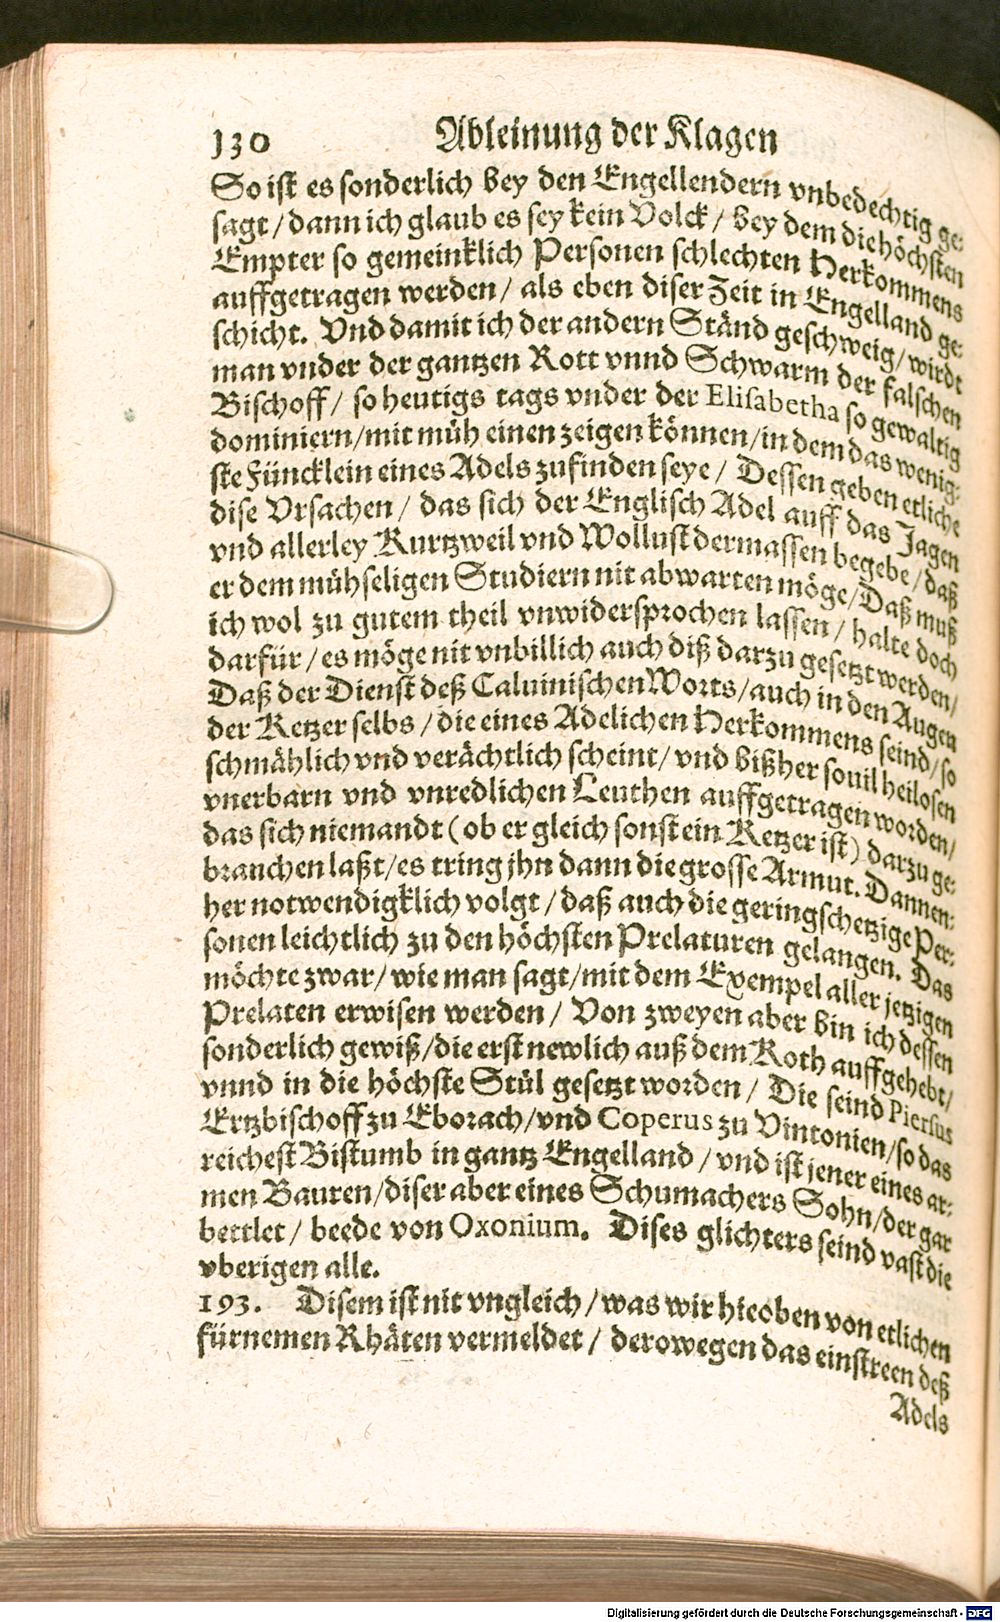 130 Ableinung der Klagen
So ist es sonderlich bey den Engellendern vnbedechtig ge-
sagt / dann ich glaub es sey kein Volck / bey dem die höchsten
Empter so gemeinklich Personen schlechten Herkommens
auffgetragen werden / als eben diser Zeit in Engelland ge-
schicht. Vnd damit ich der andern Ständ geschweig / wirdt
man vnder der gantzen Rott vnnd Schwarm der falschen
Bischoff / so heutigs tags vnder der Elisabetha so gewaltig
dominiern / mit müh einen zeigen können / in dem das wenig-
ste Füncklein eines Adels zufinden seye / Dessen geben etliche
dise Vrsachen / das sich der Englisch Adel auff das Jagen
vnd allerley Kurtzweil vnd Wollust dermassen begebe / daß
er dem mühseligen Studiern nit abwarten möge / Daß muß
ich wol zu gutem theil vnwidersprochen lassen / halte doch
darfür / es möge nit vnbillich auch diß darzu gesetzt werden /
Daß der Dienst deß Caluinischen Worts / auch in den Augen
der Ketzer selbs / die eines Adelichen Herkommens seind / so
schmählich vnd verächtlich scheint / vnd bißher souil heilosen
vnerbarn vnd vnredlichen Leuthen auffgetragen worden /
das sich niemandt ( ob er gleich sonst ein Ketzer ist ) darzu ge-
brauchen laßt / es tring jhn dann die grosse Armut. Dannen-
her notwendigklich volgt / daß auch die geringschetzige Per-
sonen leichtlich zu den höchsten Prelaturen gelangen. Das
möchte zwar / wie man sagt / mit dem Exempel aller jetzigen
Prelaten erwisen werden / Von zweyen aber bin ich dessen
sonderlich gewiß / die erst newlich auß dem Koth auffgehebt /
vnnd in die höchste Stül gesetzt worden / Die seind Piersus
Ertzbischoff zu Eborach / vnd Coperus zu Vintonien / so das
reichest Bistumb in gantz Engelland / vnd ist jener eines ar-
men Bauren / diser aber eines Schumachers Sohn / der gar
bettlet / beede von Oxonium. Dises glichters seind vast die
vberigen alle.
193. Disem ist nit vngleich / was wir hieoben von etlichen
fürnemen Rhäten vermeldet / derowegen das einstreen deß
Adels
Digitalisierung gefördert durch die Deutsche Forschungsgemeinschaft - DFG